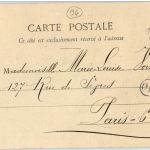 94
CARTE POSTALE
Ce côté est exclusivement réservé à l'adresse
Mademoiselle Marie Louise
127 Rue de Sèvres
Paris-6